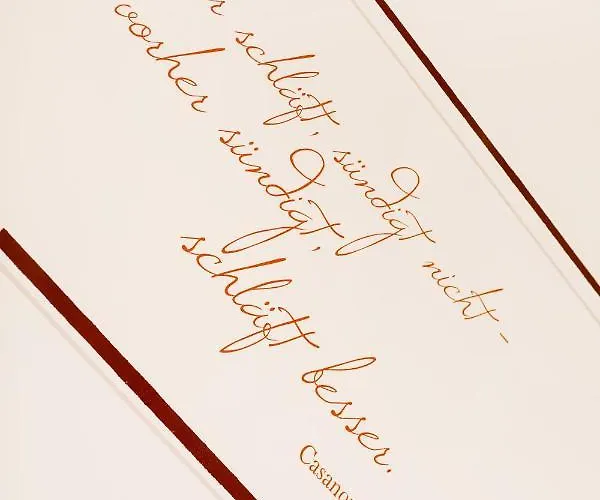 r schläft, sündigt nicht -
vorher sündigt,
schläft besser.
Casano